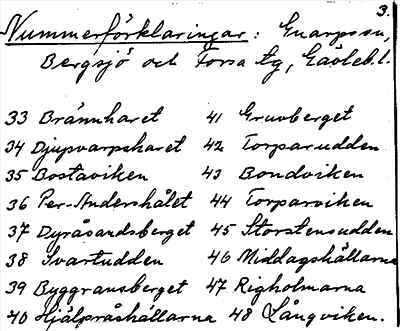 3.
Nummerförklaringar: Gnarps sn,
Bergsjö och Forsa tg, Gävleb.l.
33 Brännharet 41 Gruvberget
34 Djupvarpsharet 42 Torparudden
35 Bostaviken 43 Bondviken
36 Per-Andershålet 44 Torparviken
37 Dyråsandsberget 45 Storstensudden
38 Svartudden 46 Middagshällarna
39 Byggransberget 47 Righolmarna
40 Hjälpråshällarna 48 Långviken.